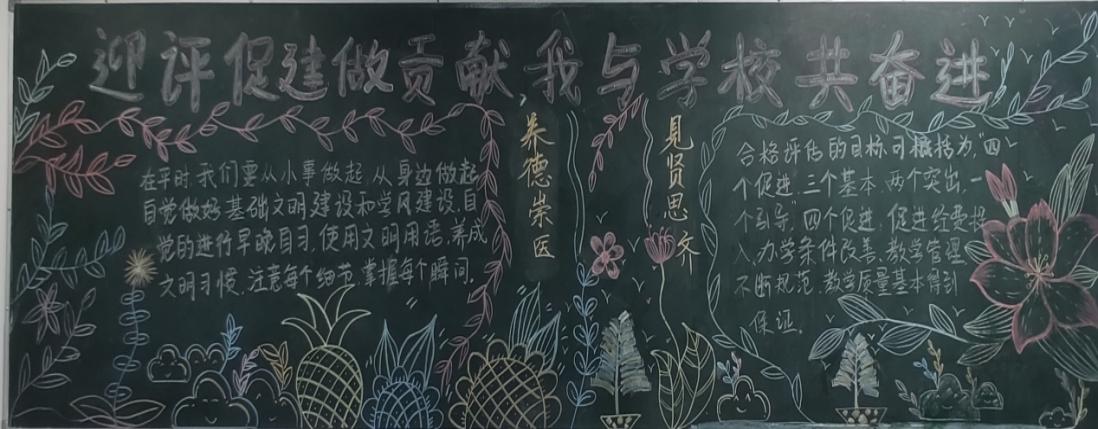 迎评促建做贡献 我与学校共奋进
在平时,我们要从小事做起,从身边做起,
自觉做好基础文明建设和学风建设,自
觉的进行早晚自习,使用文明用语,养成
文明习惯,注意每个细节,掌握每个瞬间。
养德崇医
見贤思齐
合格评估的目标可概括为“四
个促进,三个基本,两个突出,一
个引导”四个促进:促进经费投
入,办学条件改善,教学管理
不断规范,教学质量基本得到
保证。